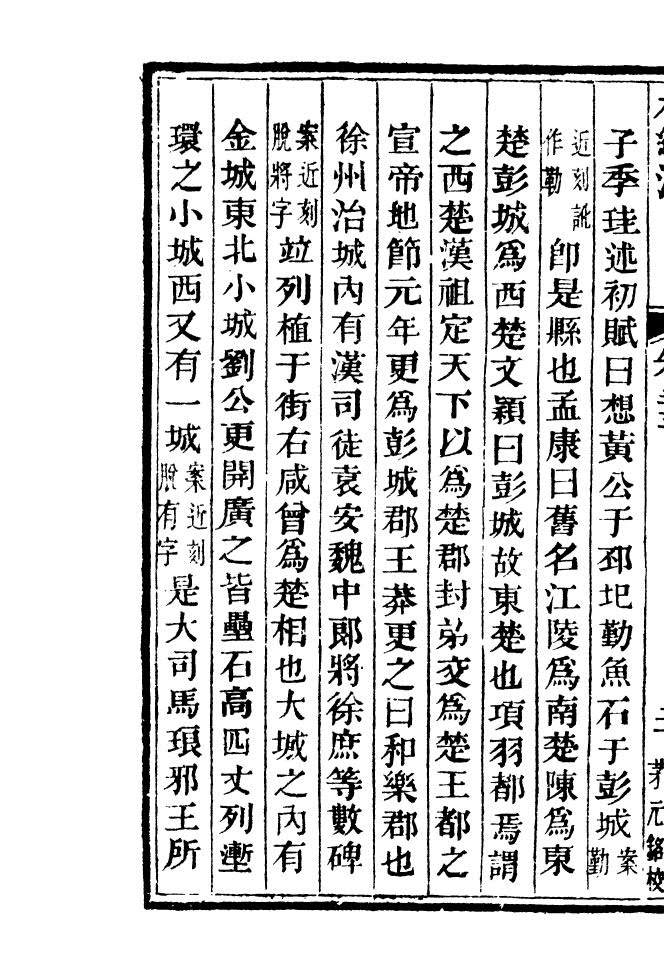 二 茅元銘校
子季珪述初賦曰想黃公于邳圯勤魚石于彭城案勤
近刻訛作勒卽是縣也孟康曰舊名江陵爲南楚陳爲東
楚彭城爲西楚文穎曰彭城故東楚也項羽都焉謂
之西楚漢祖定天下以爲楚郡封弟交爲楚王都之
宣帝地節元年更爲彭城郡王莽更之曰和樂郡也
徐州治城內有漢司徒袁安魏中郞將徐庶等數碑
案近刻脫將字竝列植于街右咸曾爲楚相也大城之內有
金城東北小城劉公更開廣之皆壘石高四丈列塹
環之小城西又有一城案近刻脫有字是大司馬琅邪王所